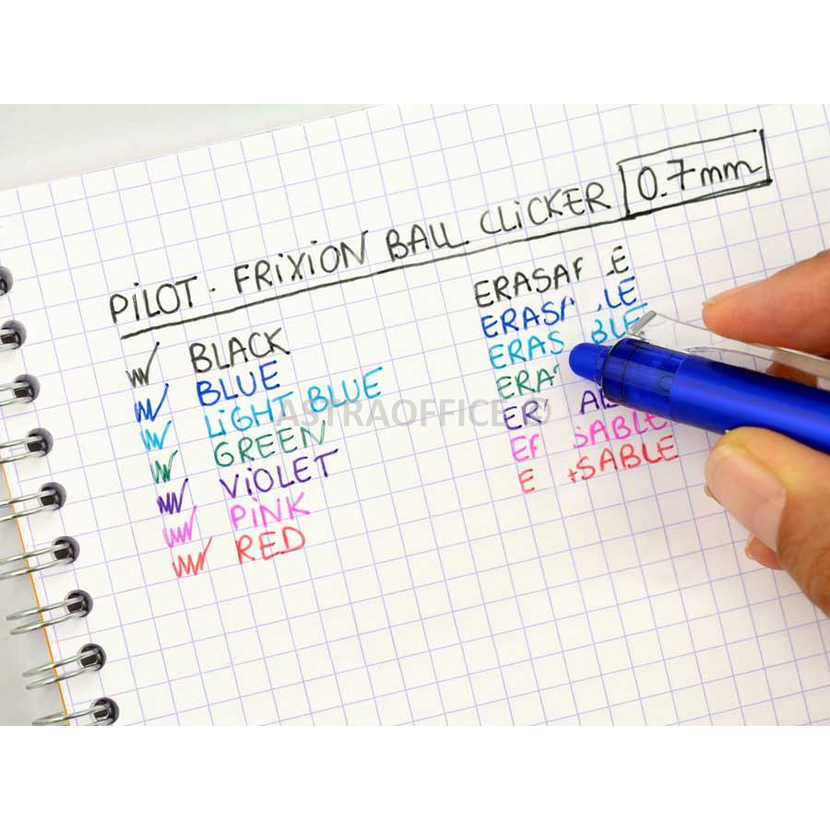 PiLOT. FRiXiON BALL CLiCKER 0.7mm
BLACK
BLUE
LiGHT BLUE
GREEN
ViOLET
PiNK
RED
ERASA LE
ERAS LE
ERAS BLE
ERA
ER AB
E SABLE
E SABLE
ASTRAOFFICE ©